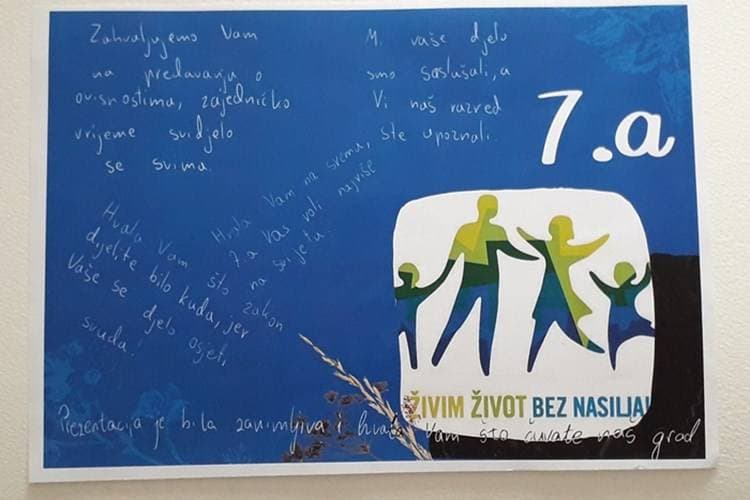 Zahvaljujemo Vam
na predavanju o
ovisnostima, zajedničko
vrijeme svidjelo
se svima.
Mi vaše djelo
smo saslušali, a
Vi naš razred
ste upoznali.
7.a
Hvala Vam na svemu,
7.a Vas voli najviše
na svijetu.
Hvala Vam što zakon
dijelite bilo kuda, jer
Vaše se djelo osjeti
svuda!
ŽIVIM ŽIVOT BEZ NASILJA!
Prezentacija je bila zanimljiva i hvala Vam što čuvate naš grad